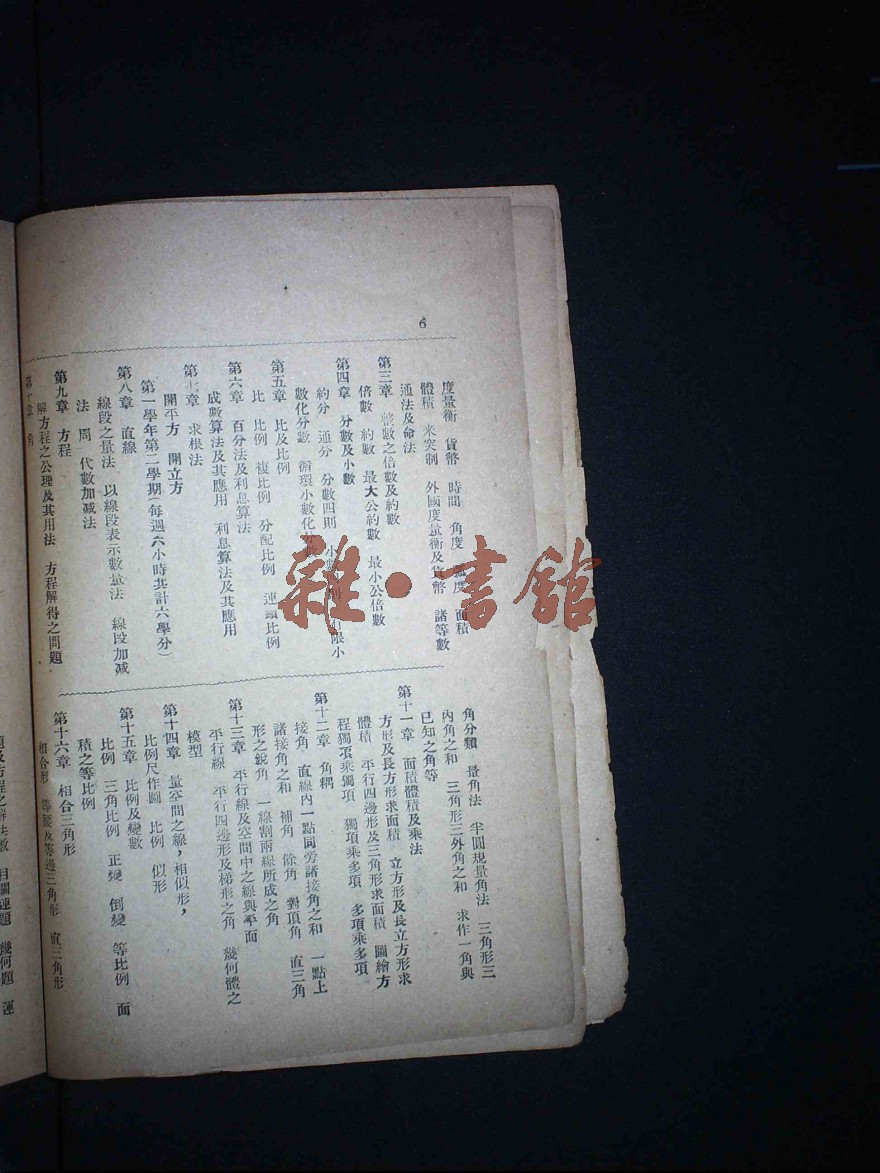 6
度量衡 貨幣 時間 角度 溫度 面積
體積 米突制 外國度量衡及貨幣 諸等數
通法及命法
第三章 整數之倍數及約數
倍數 約數 最大公約數 最小公倍數
第四章 分數及小數
約分 通分 分數四則 小數四則 有限小
數化分數 循環小數化分數
第五章 比及比例
比 比例 複比例 分配比例 連鎖比例
第六章 百分法及利息算法
成數算法及其應用 利息算法及其應用
第七章 求根法
開平方 開立方
第一學年第二學期(每週六小時共計六學分)
第八章 直線
線段之量法 以線段表示數量法 線段加减
法 周 代數加减法
第九章 方程
解方程之公理及其用法 方程解得之問題
第十章 角
角分類 量角法 半圓規量角法 三角形三
內角之和 三角形三外角之和 求作一角與
已知之角等
第十一章 面積體積及乘法
方形及長方形求面積 立方形及長立方形求
體積 平行四邊形及三角形求面積 圖繪方
程獨項乘獨項 獨項乘多項 多項乘多項
第十二章 角耦
接角 直線內一點同旁諸接角之和 一點上
諸接角之和 補角 餘角 對頂角 直三角
形之銳角 一線割兩線所成之角
第十三章 平行線及空間中之線與平面
平行線 平行四邊形及梯形之角 幾何體之
模型
第十四章 量空間之線,相似形,
比例尺作圖 比例 似形
第十五章 比例及變數
比例 三角比例 正變 倒變 等比例 面
積之等比例
第十六章 相合三角形
相合形 等腰及等邊三角形 直三角形
題及方程之解法數 相關連題 幾何題 運
雜·書館